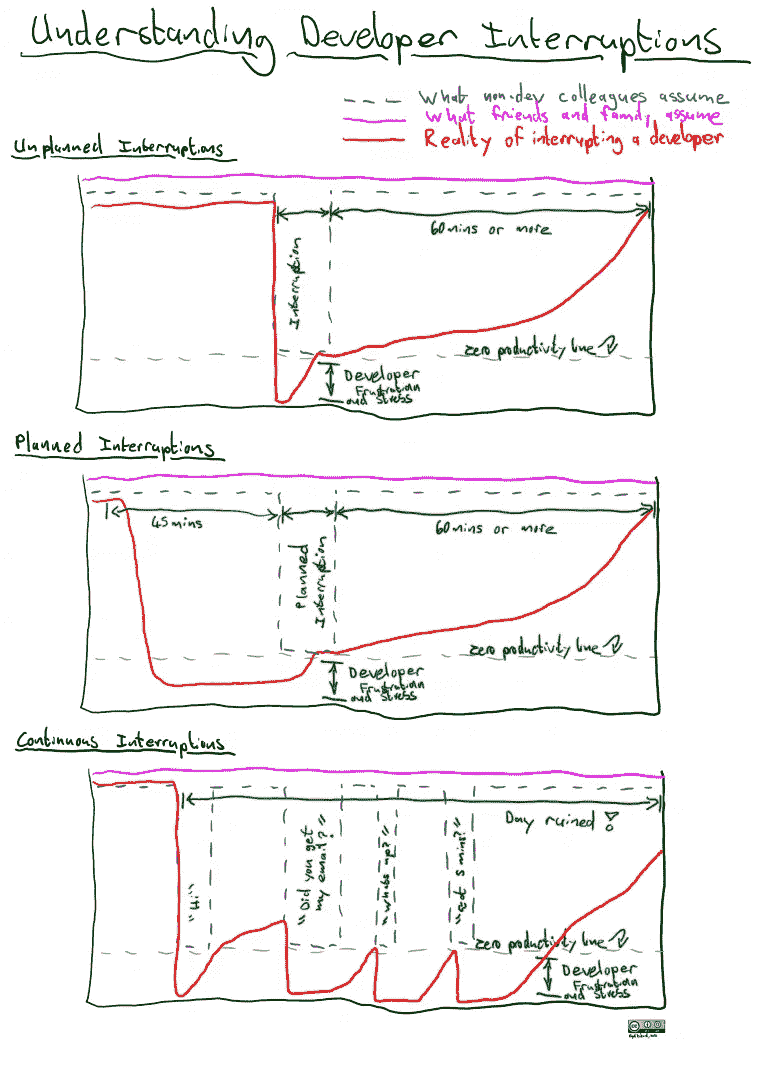 Understanding Developer Interruptions
What non-dev colleagues assume
What friends and family assume
Reality of interrupting a developer
Unplanned Interruptions
Interruption
60 mins or more
zero productivity line
Developer
Frustration
and Stress
Planned Interruptions
45 mins
Planned
Interruption
60 mins or more
zero productivity line
Developer
Frustration
and Stress
Continuous Interruptions
Day ruined!
"Hi"
"Did you get
my email?"
"Whats up?"
"Got 5 mins?"
zero productivity line
Developer
Frustration
and Stress